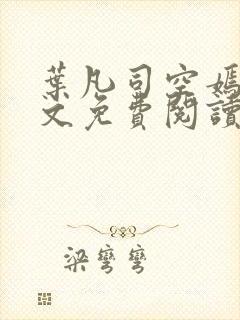 葉凡司空嫣
文免費閱讀
梁彎彎